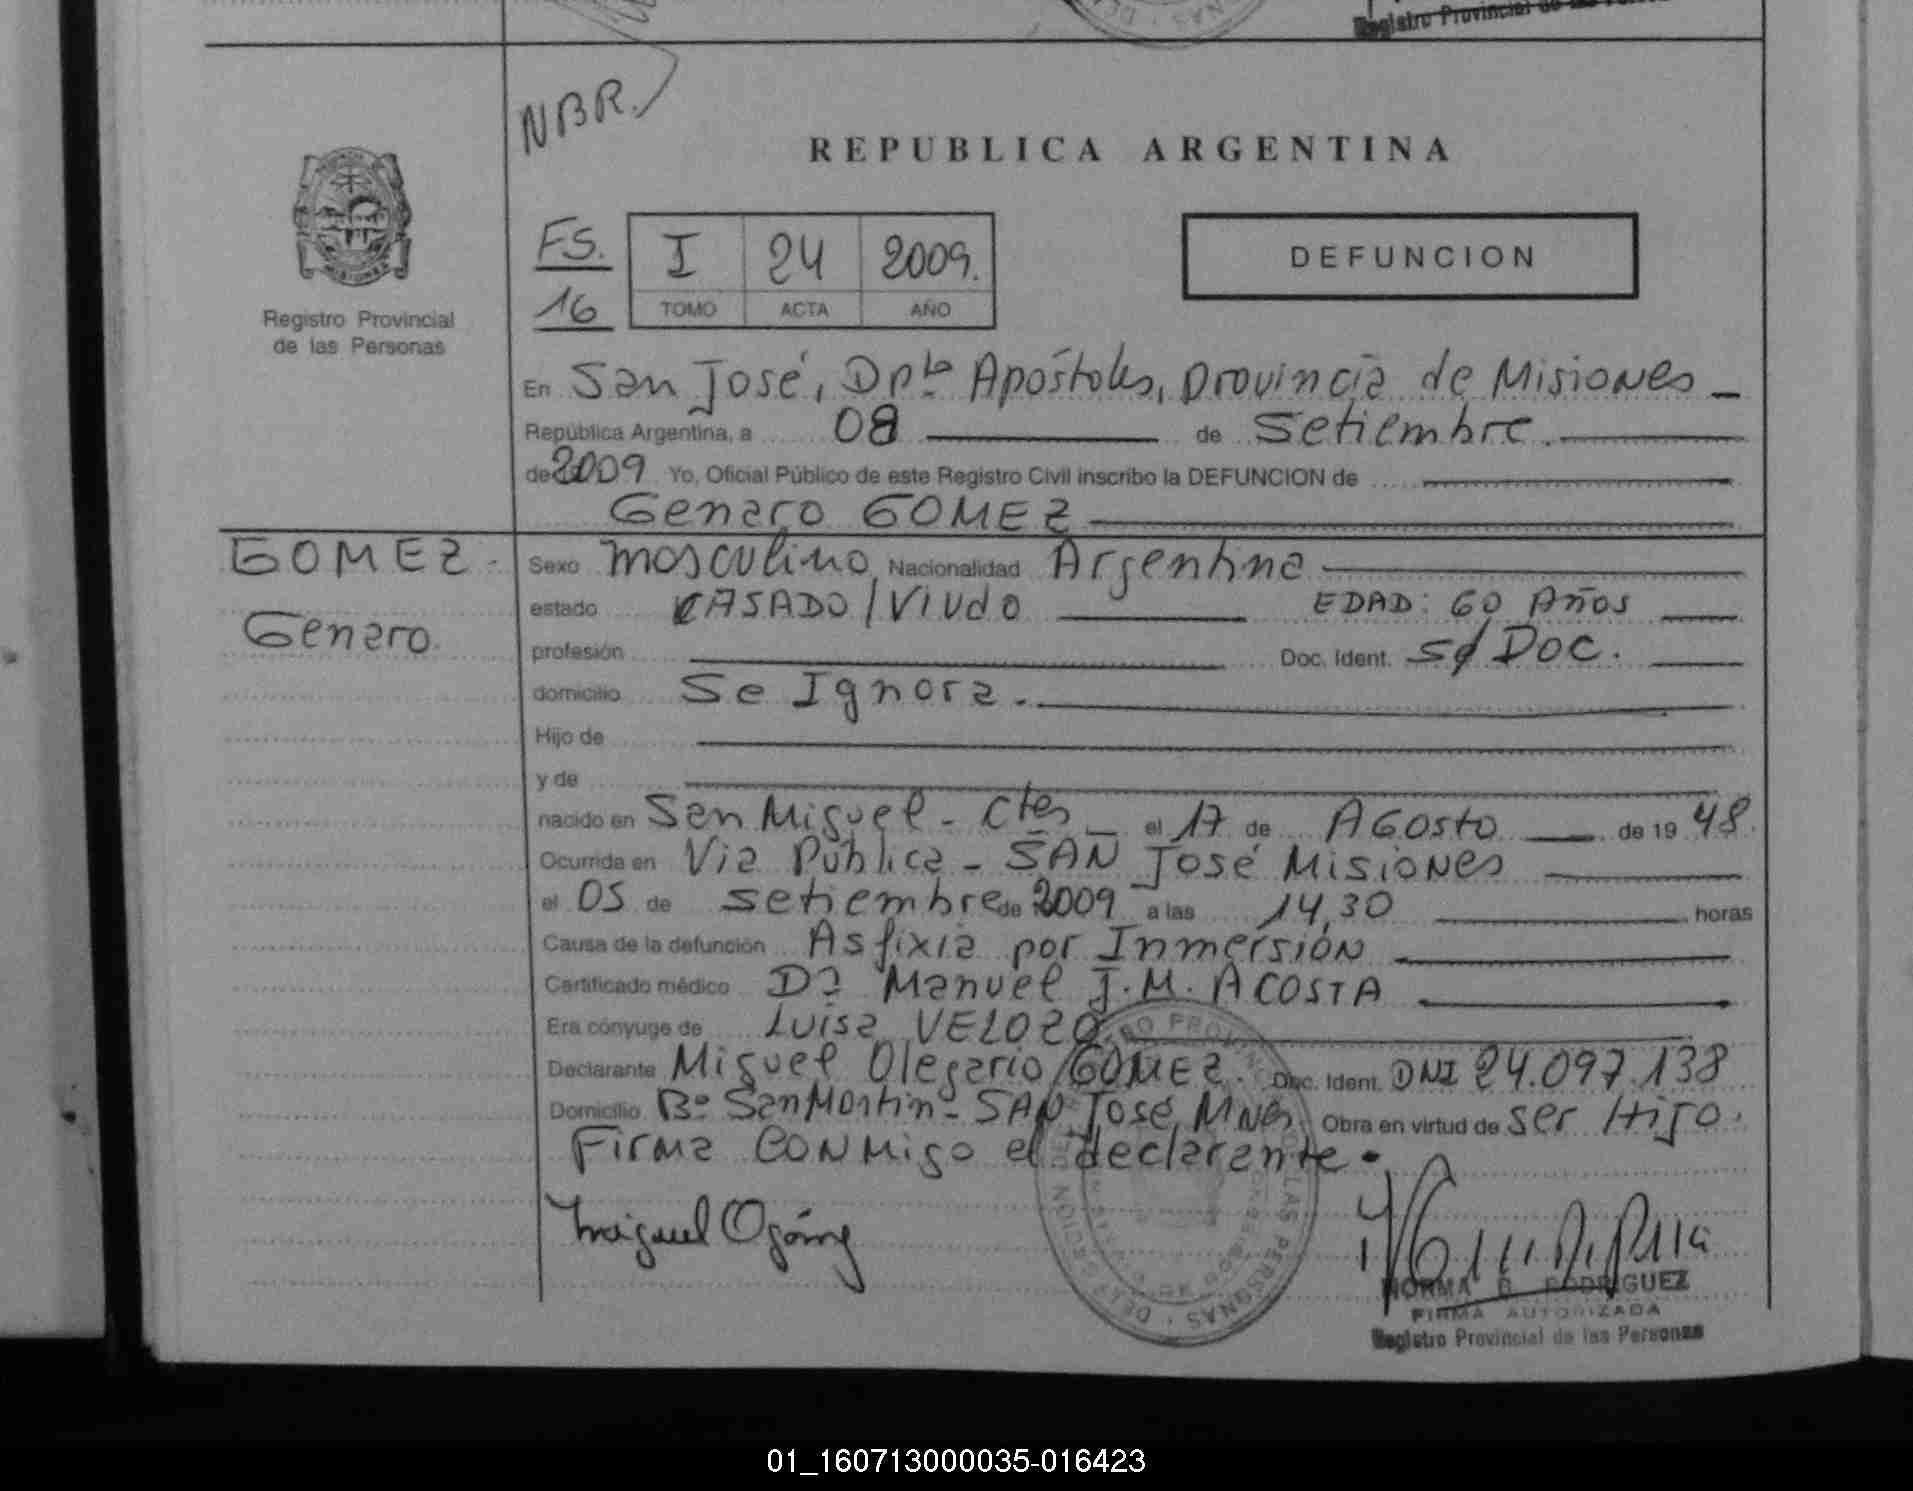 Registro Provincial de las
NBR.
REPUBLICA ARGENTINA
FS.
16
I 24 2009.
TOMO ACTA AÑO
DEFUNCION
MISIONES
Registro Provincial
de las Personas
En San José, Dpto Apóstoles, provincia de Misiones
República Argentina, a 08 de Setiembre.
de 2009 Yo, Oficial Público de este Registro Civil inscribo la DEFUNCION de
Genaro GOMEZ
GOMEZ
Genaro
Sexo masculino Nacionalidad Argentina
estado CASADO/Viudo EDAD: 60 Años
profesión Doc. Ident. S/Doc.
domicilio Se Ignora.
Hijo de
y de
nacido en San Miguel - Ctes el 17 de AGosto de 19 48.
Ocurrida en Via Pública - SAN José Misiones
el 05 de setiembre de 2009 a las 14,30 horas
Causa de la defunción Asfixia por Inmersión
Certificado médico Dr Manuel J.M. ACOSTA
Era cónyuge de Luisa VELOZO
Declarante Miguel Olegario GOMEZ. Doc. Ident. DNI 24.097.138
Domicilio Bº San Martin - SAN José Mnes Obra en virtud de ser Hijo.
Firma CONMigo el declarante.
Miguel O gómez
NORMA B. RODRIGUEZ
FIRMA AUTORIZADA
Registro Provincial de las Personas
01_160713000035-016423